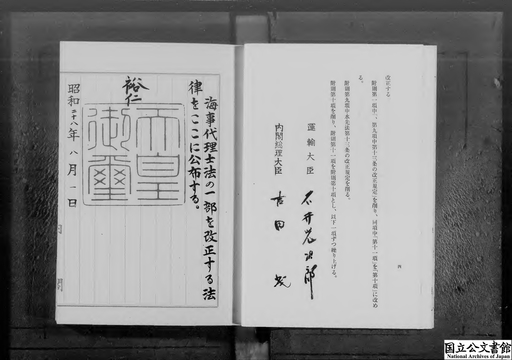 改正する。
附則第一項中「、第九項中第十三条の改正規定」を削り、同項中「第十一項」を「第十項」に改め
る。
附則第九項中水先法第十三条の改正規定を削る。
附則第十項を削り、附則第十一項を附則第十項とし、以下一項ずつ繰り上げる。
運輸大臣 石井光次郎
内閣総理大臣 吉田茂
海事代理士法の一部を改正する法
律をここに公布する。
裕仁
天皇
御璽
昭和二十八年八月一日
国立公文書館
National Archives of Japan